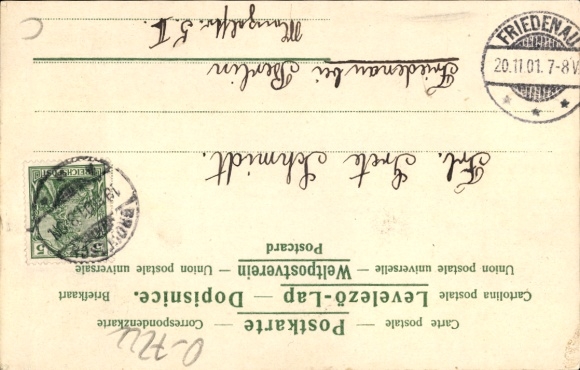 Carte postale — Postkarte — Correspondenzkarte
Cartolina postale — Levelező-Lap — Dopisnice. Briefkaart
Union postale universelle — Weltpostverein — Union postale universale
Postcard
Frl. Grete Schmidt.
Friedenau bei Berlin
5 REICHSPOST 5
FRIEDENAU
20.11.01. 7-8V.